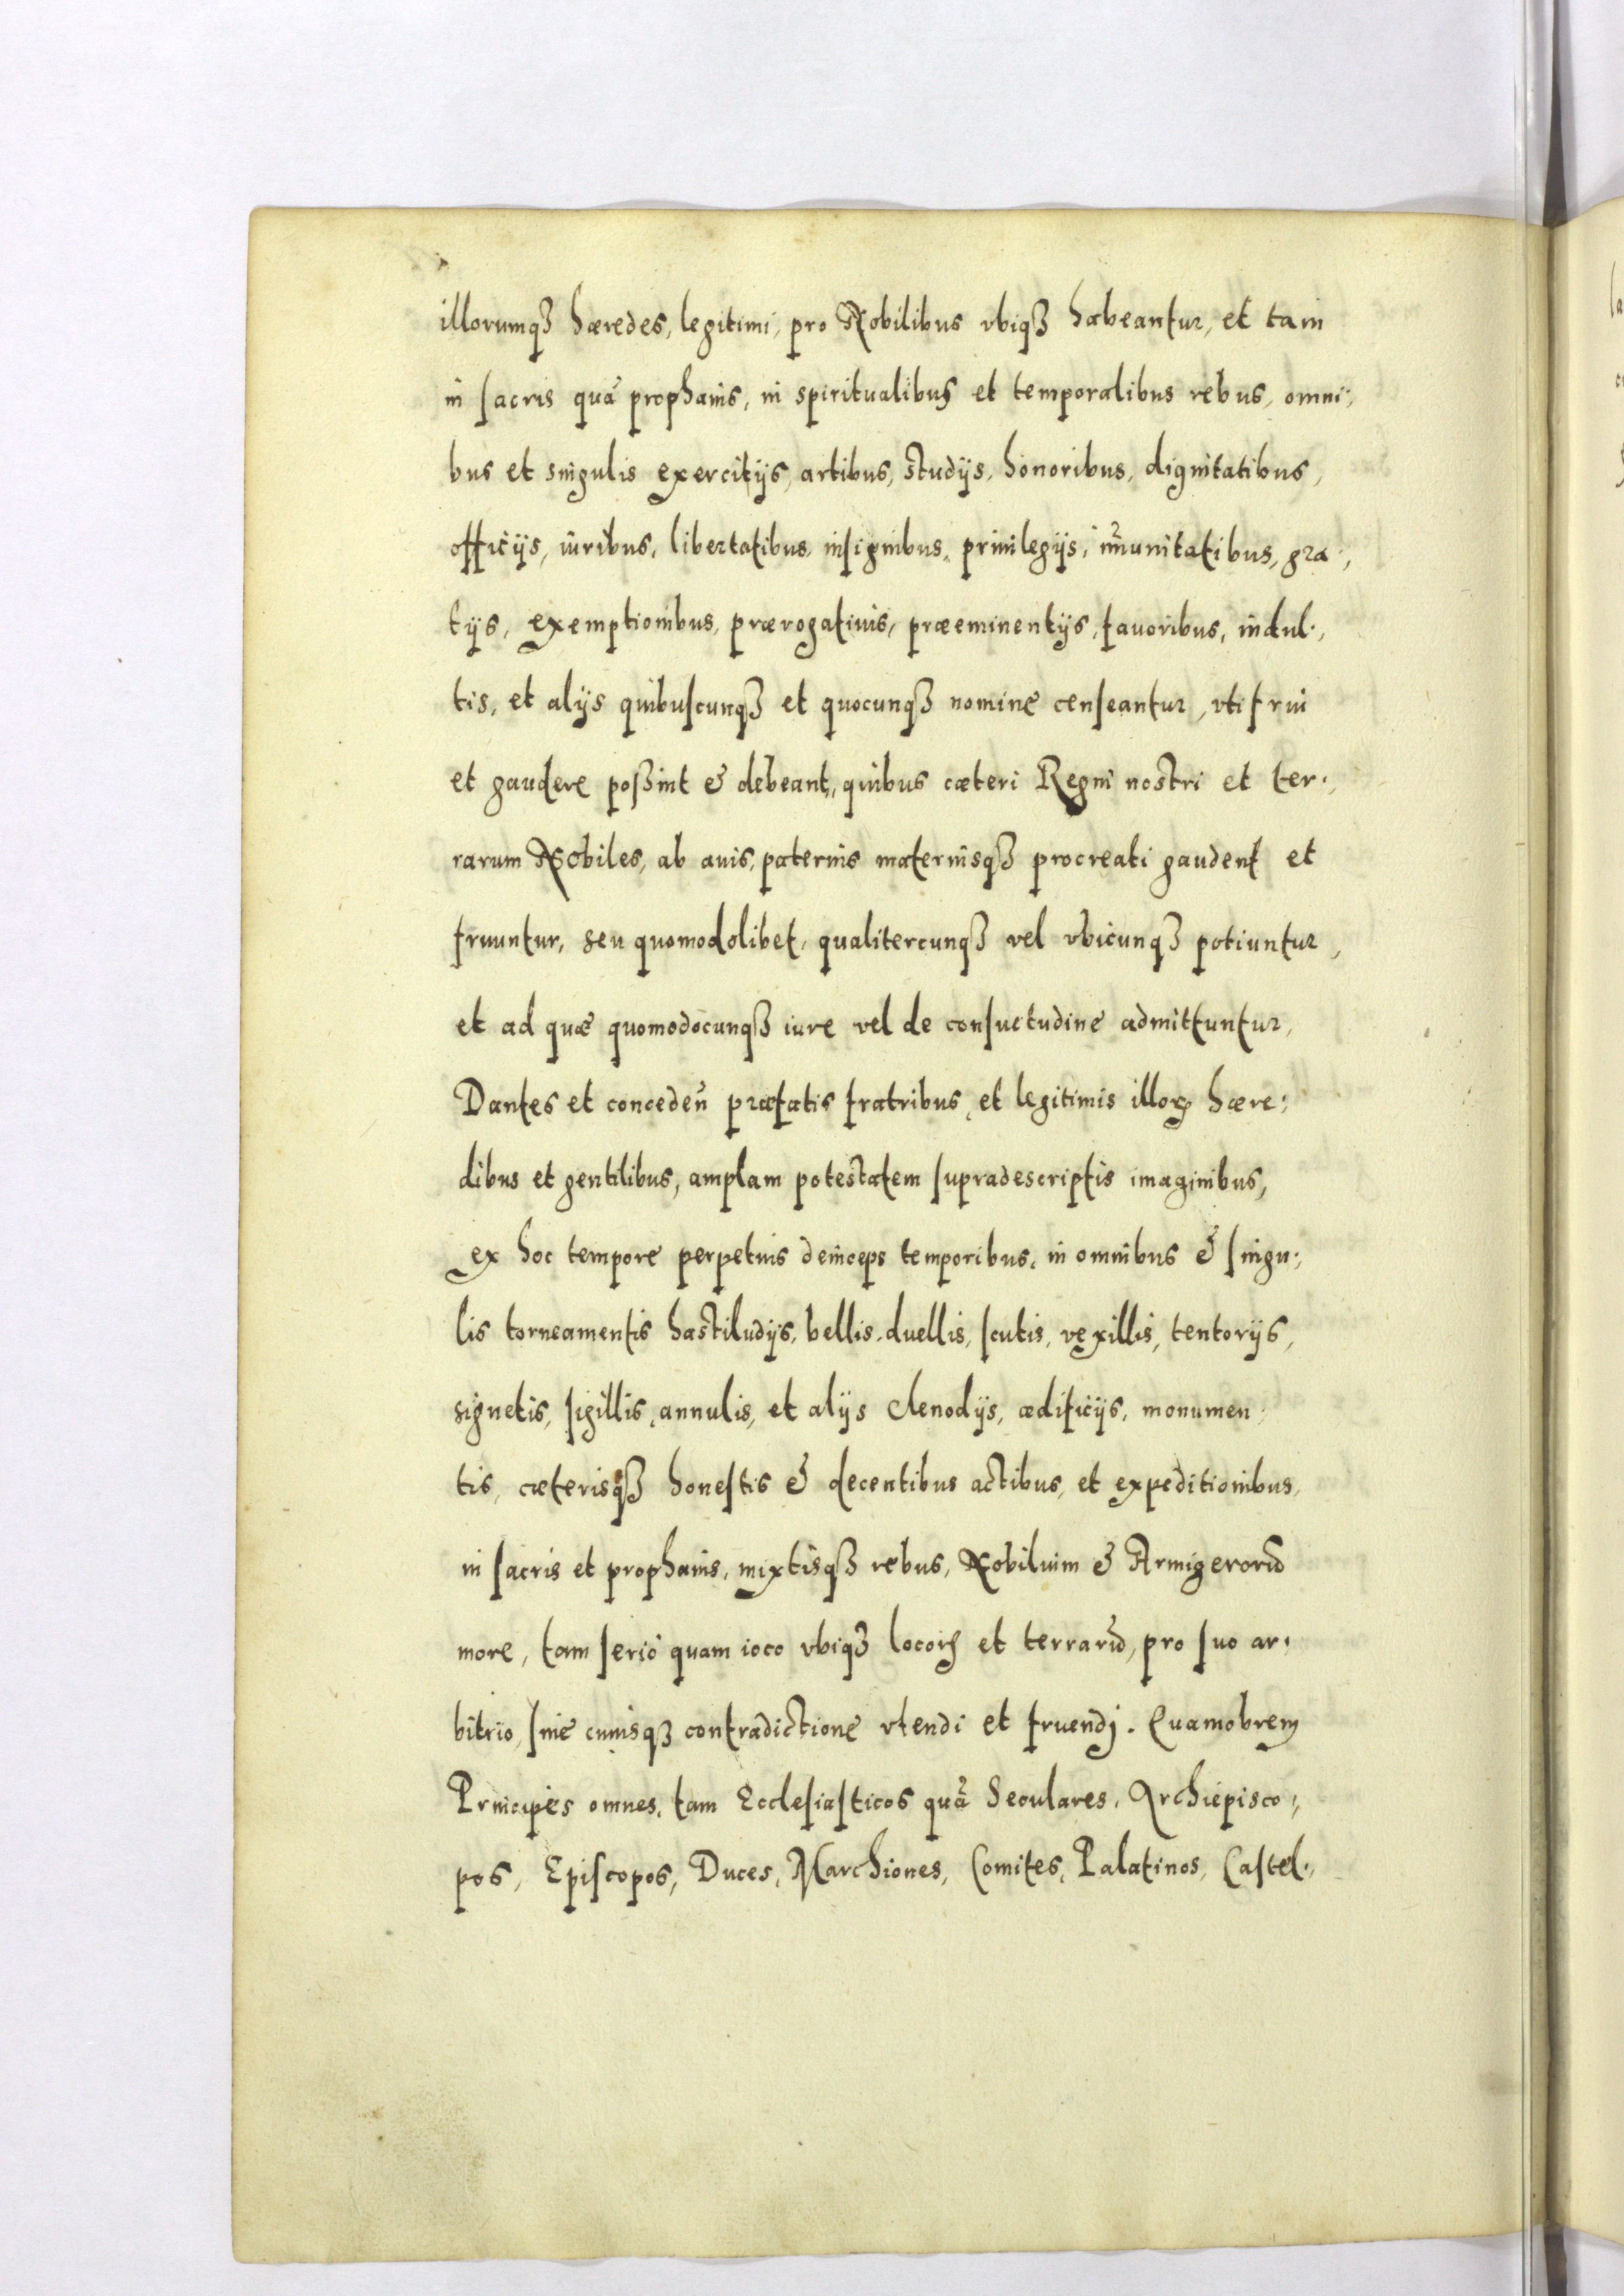 illorumqȝ hæredes, legitimi, pro Nobilibus vbiqȝ habeantur, et tam
in sacris quā prophanis, in spiritualibus et temporalibus rebus, omni:,
bus et singulis exercitijs, artibus, studijs, honoribus, dignitatibus,
officijs, iuribus, libertatibus, insignibus, priuilegijs, im̄unitatibus, gra:,
tijs, exemptionibus, prærogatiuis, præeminentijs, fauoribus, indul:,
tis, et alijs quibuscunqȝ et quocunqȝ nomine censeantur, vti frui
et gaudere poßint & debeant, quibus cæteri Regni nostri et ter:,
rarum Nobiles, ab auis, paternis maternisqȝ procreati gaudent et
fruuntur, seu quomodolibet, qualitercunqȝ vel vbicunqȝ potiuntur,
et ad quæ quomodocunqȝ iure vel de consuetudine admittuntur,
Dantes et conceden̄ præfatis fratribus, et legitimis illoꝝ hære:,
dibus et gentilibus, amplam potestatem supradescriptis imaginibus,
ex hoc tempore perpetuis deinceps temporibus, in omnibus & singu:,
lis torneamentis hastiludijs, bellis, duellis, scutis, vexillis, tentorijs,
signetis, sigillis, annulis, et alijs clenodijs, ædificijs, monumen:,
tis, cæterisqȝ honestis & decentibus actibus, et expeditionibus,
in sacris et prophanis, mixtisqȝ rebus, Nobilium & Armigerorū
more, tam serio quam ioco vbiqȝ locoꝝ et terrarū, pro suo ar:,
bitrio, sine cuiusqȝ contradictione vtendi et fruendj. Quamobrem
Principes omnes, tam Ecclesiasticos quā Seculares, Archiepisco:,
pos, Episcopos, Duces, Marchiones, Comites, Palatinos, Castel:,